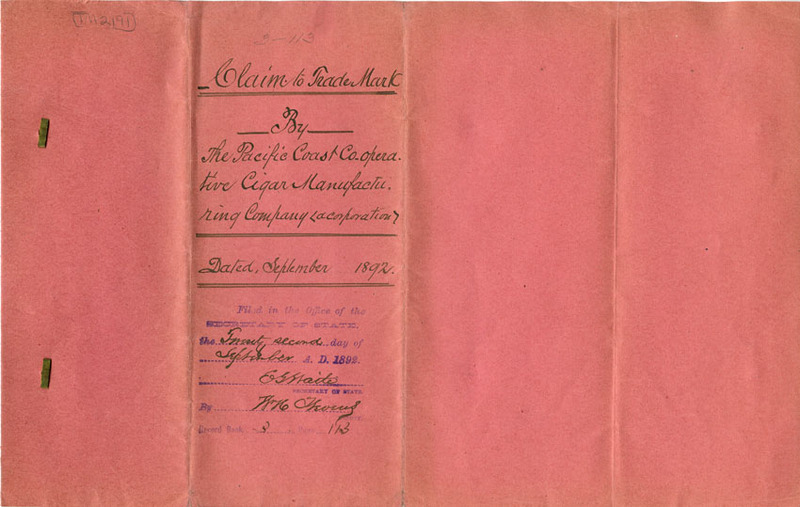 TM 2191
3-113
Claim to Trade Mark
By
The Pacific Coast Co.opera-
tive Cigar Manufactu-
ring Company (a corporation)
Dated, September 1892.
Filed in the Office of the
SECRETARY OF STATE.
the Twenty second day of
September A. D. 1892.
E G Waite
SECRETARY OF STATE.
By W H
Record Book 3 Page 113